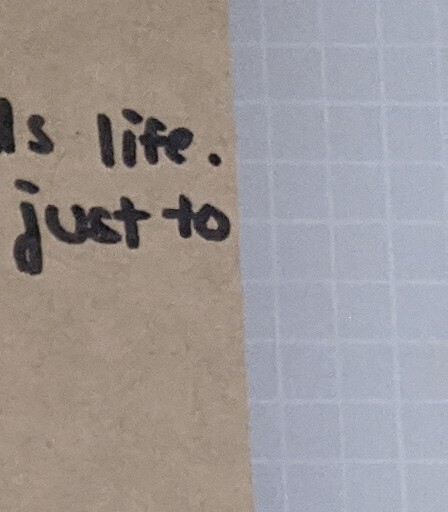 life.
just to